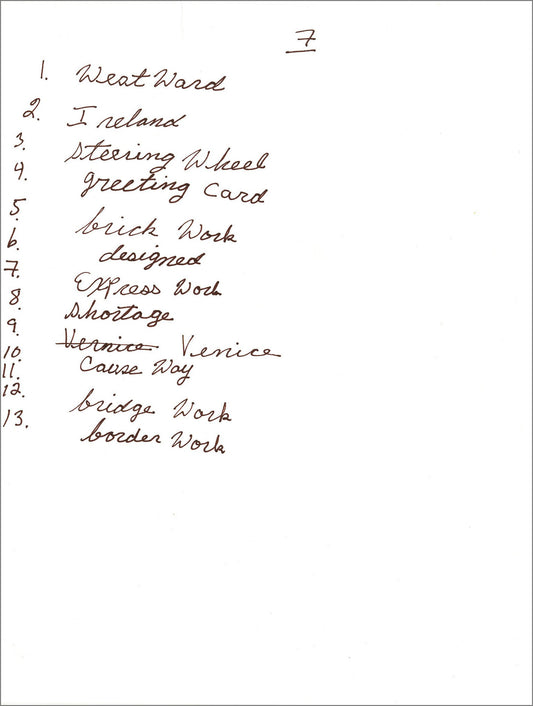 7
1. WestWard
2. Ireland
3. steering Wheel
4. greeting Card
5. brick Work
6. designed
7. EXPress Work
8. shortage
9. Vernice Venice
10. Cause Way
11.
12. bridge Work
13. border Work